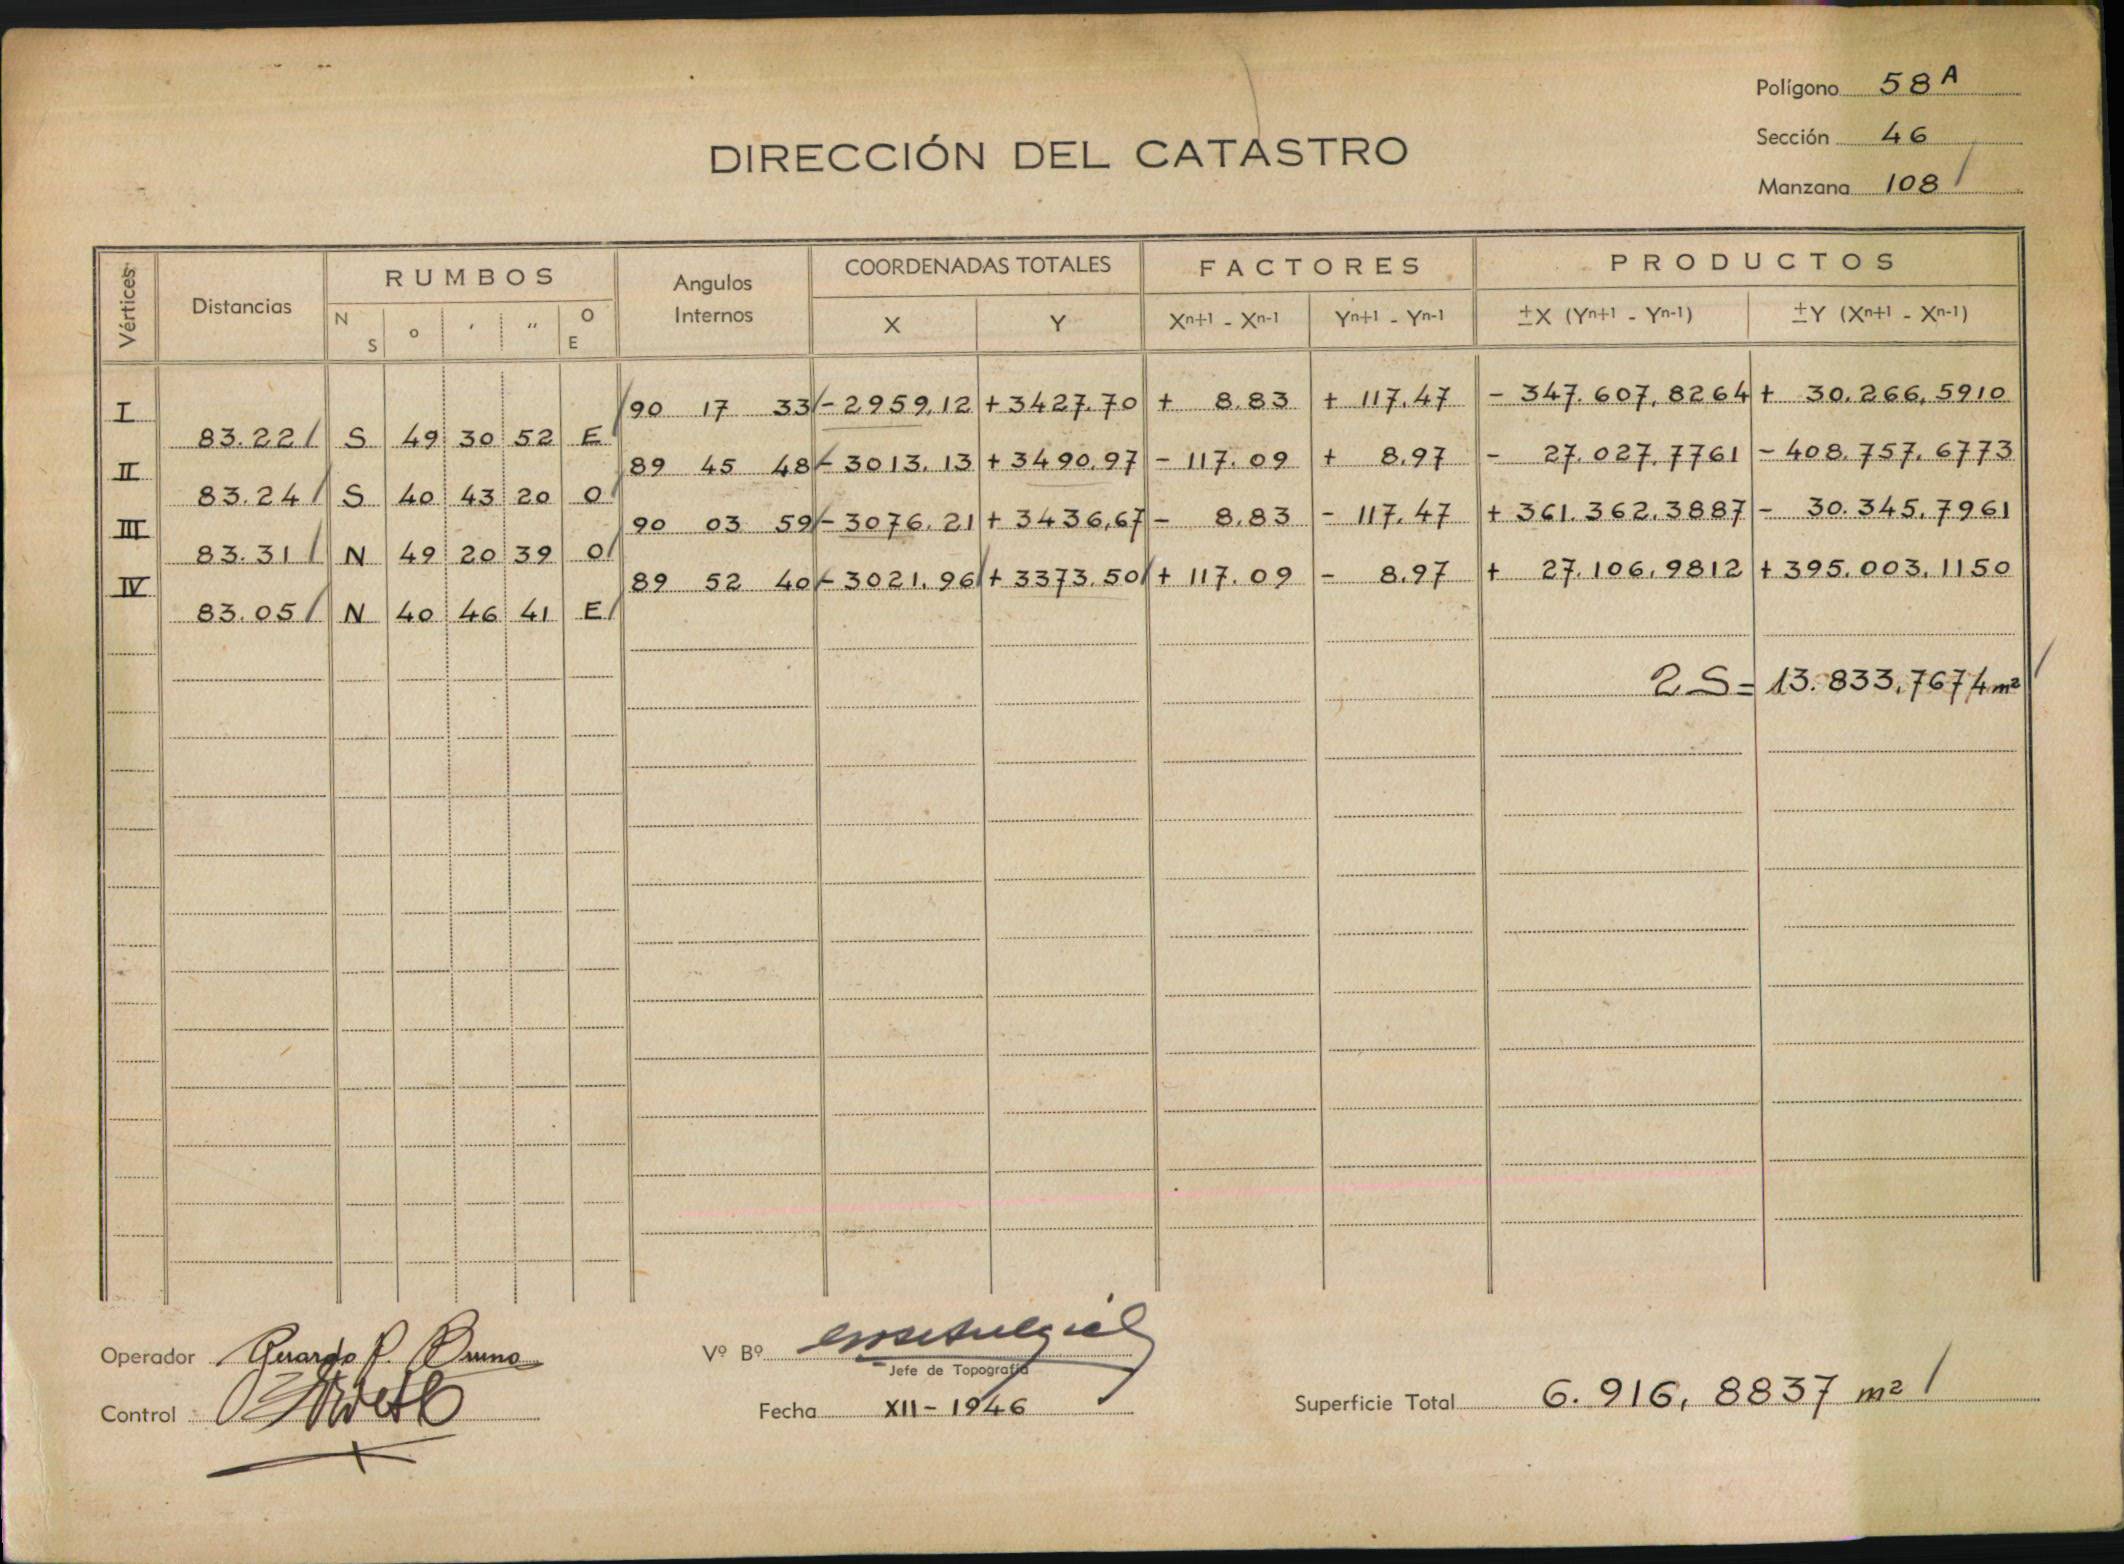 Polígono 58 A
Sección 46
Manzana 108
DIRECCIÓN DEL CATASTRO
Vértices Distancias RUMBOS Angulos Internos COORDENADAS TOTALES FACTORES PRODUCTOS
N S o ' '' O E X Y Xn+1 - Xn-1 Yn+1 - Yn-1 ±X (Yn+1 - Yn-1) ±Y (Xn+1 - Xn-1)
I 90 17 33 - 2959,12 + 3427.70 + 8.83 + 117.47 - 347.607,8264 + 30.266,5910
83.22 S 49 30 52 E
II 89 45 48 - 3013.13 + 3490.97 - 117.09 + 8.97 - 27.027,7761 - 408.757,6773
83.24 S 40 43 20 O
III 90 03 59 - 3076.21 + 3436,67 - 8.83 - 117.47 + 361.362,3887 - 30.345,7961
83.31 N 49 20 39 O
IV 89 52 40 - 3021.96 + 3373.50 + 117.09 - 8.97 + 27.106,9812 + 395.003,1150
83.05 N 40 46 41 E
2 S = 13.833,7674 m²
Operador Gerardo P. Bruno
Vº Bº
Jefe de Topografía
Control
Fecha XII - 1946
Superficie Total 6.916,8837 m²